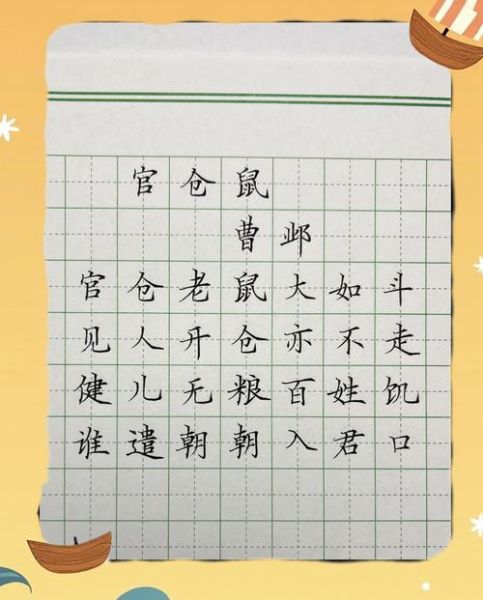 官仓鼠
曹邺
官仓老鼠大如斗
见人开仓亦不走
健儿无粮百姓饥
谁遣朝朝入君口